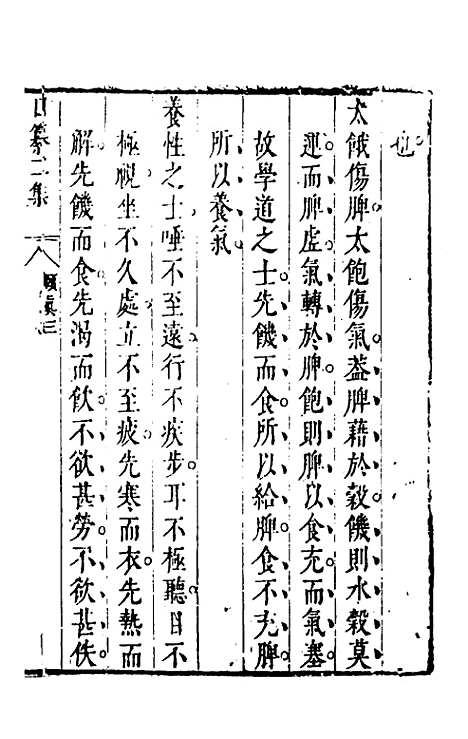 也
太餓傷脾太飽傷氣葢脾藉於穀饑則水穀莫
運而脾虗氣轉於脾飽則脾以食充而氣塞
故學道之士先饑而食所以給脾食不充脾
所以養氣
養性之士唾不至遠行不疾步耳不極聽目不
極視坐不久處立不至疲先寒而衣先熱而
解先饑而食先渴而飲不欲甚勞不欲甚佚
日纂二集
頤真三